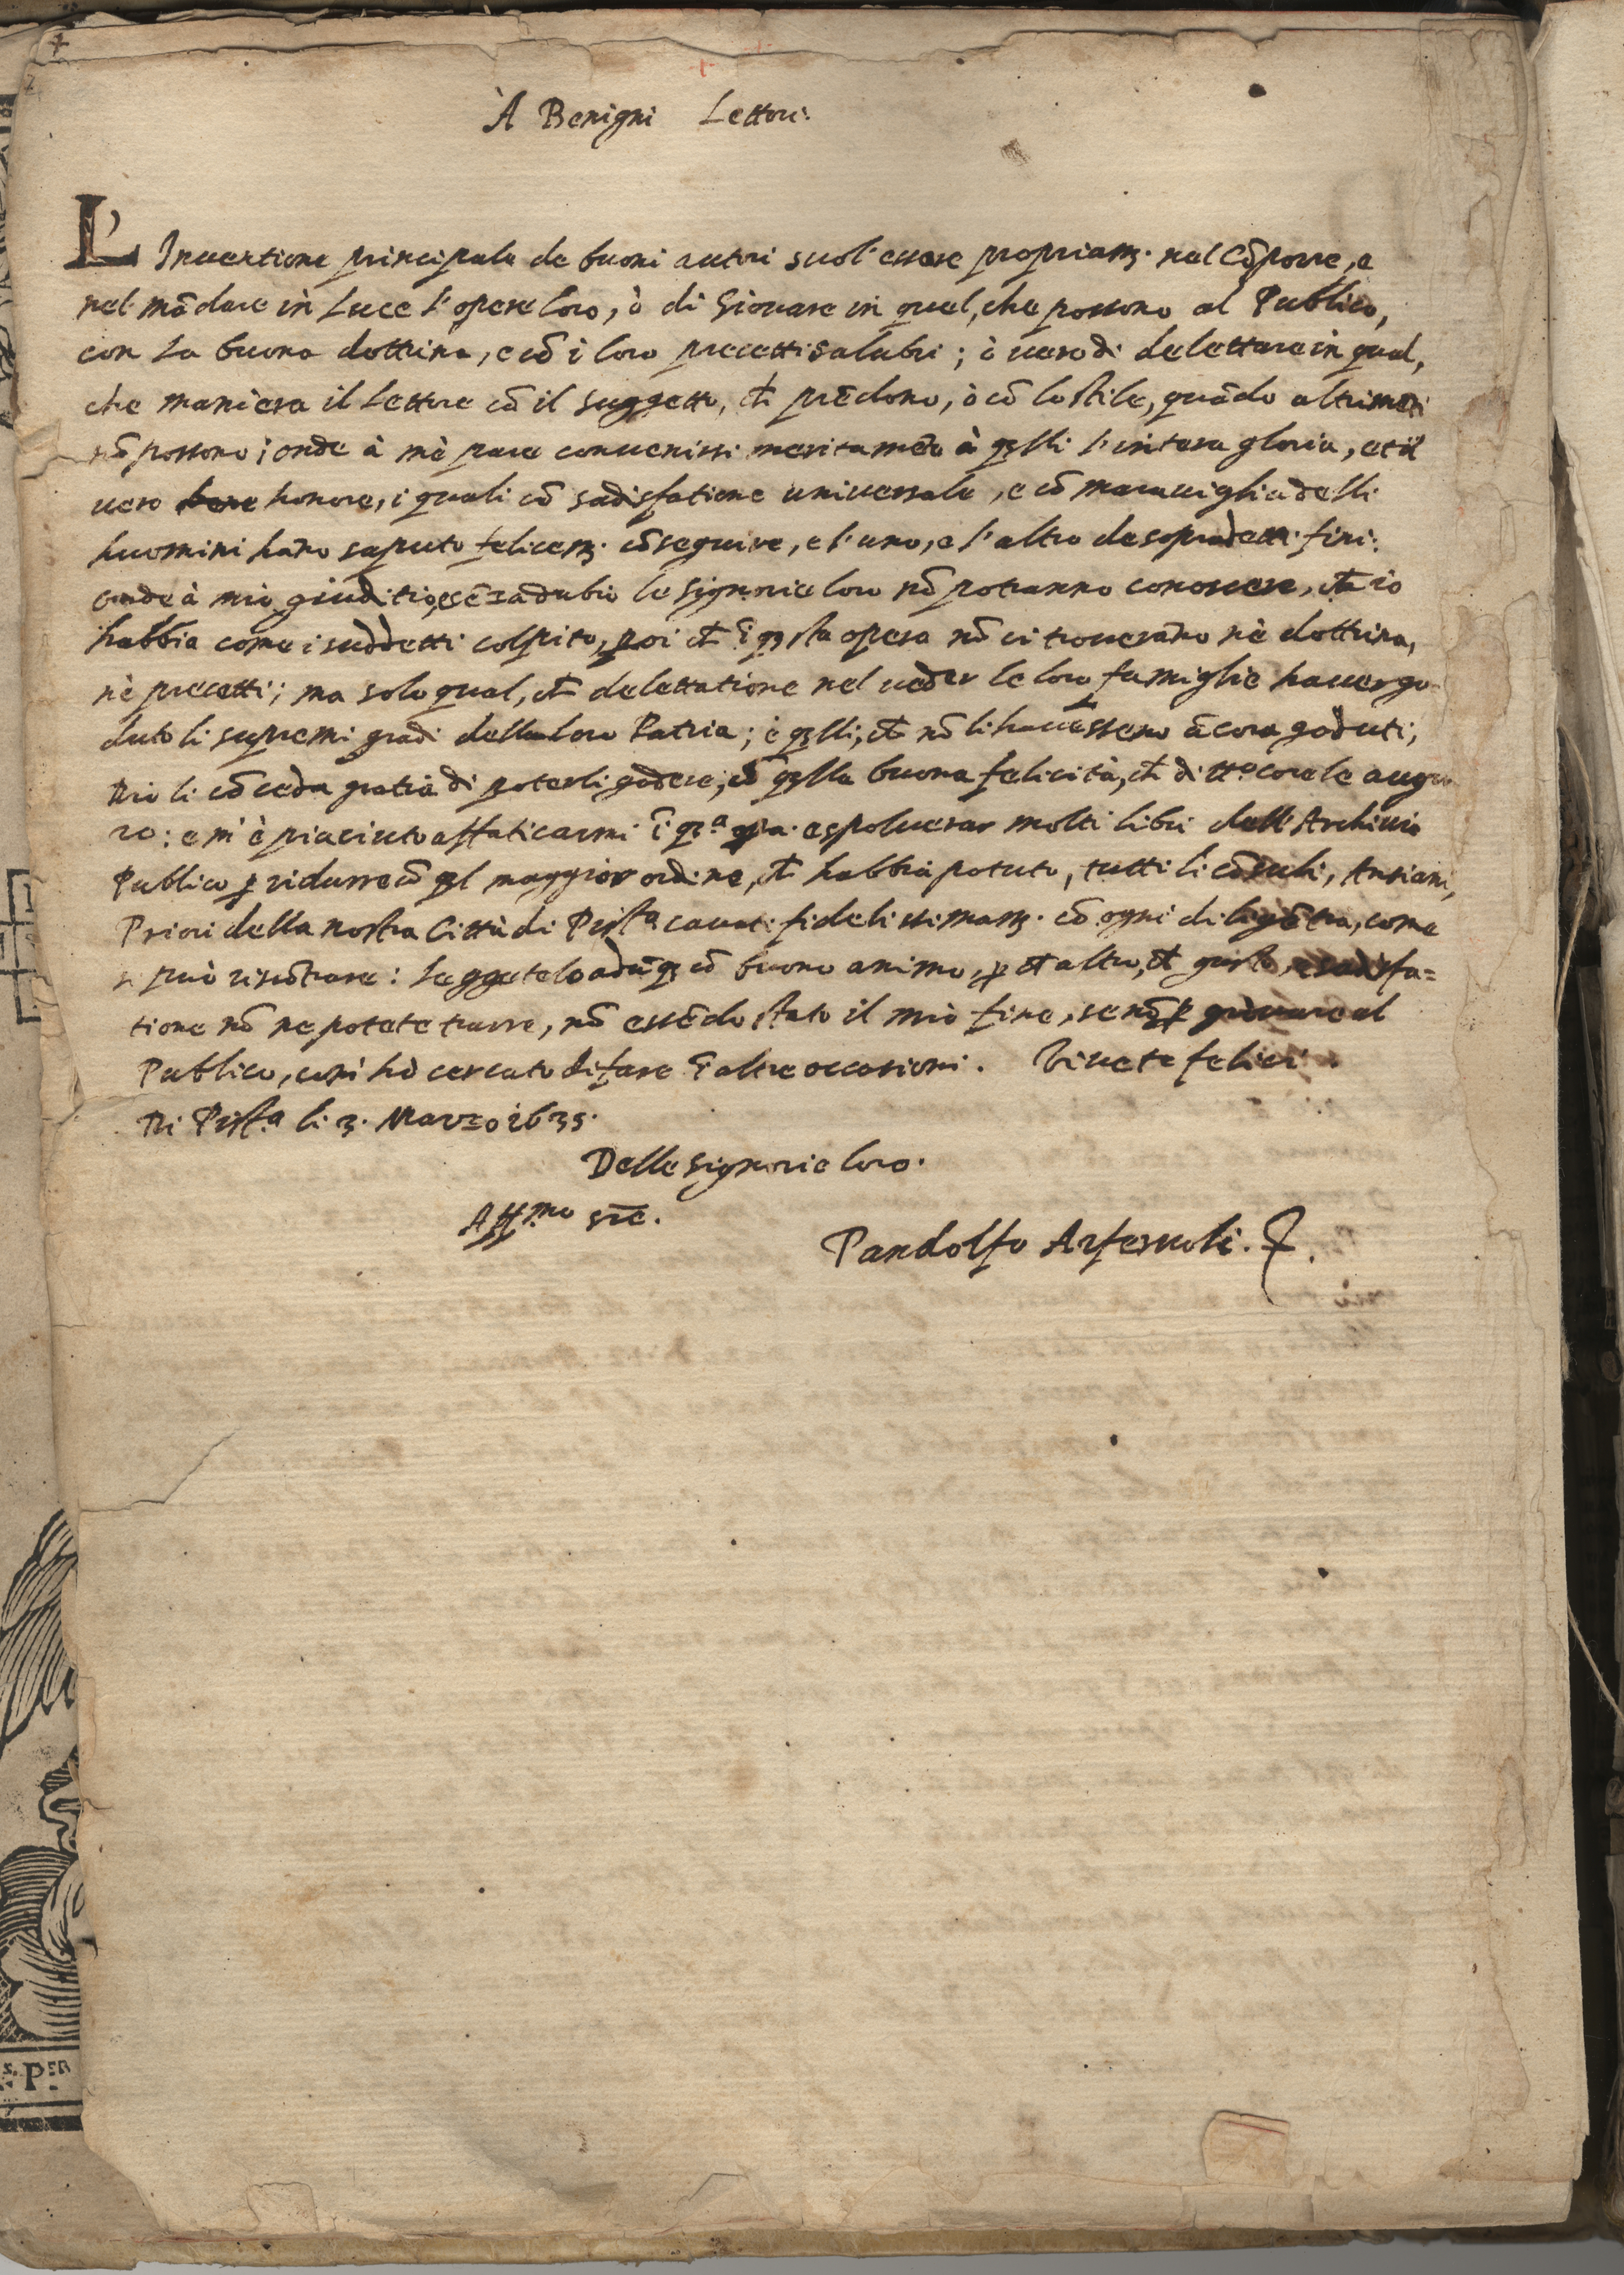 À Benigni Lettori.
L'Inuentione principale de buoni autori suol'essere propriamẽ. nel Cõporre, e
nel mãdare in Luce l'opere loro, ò di Giouare in quel, che possono al Publico,
con la buona dottrina, e cõ i loro precetti salubri; ò uero di delettare in qual,
che maniera il Lettore cõ il suggetto, ch̃ prẽdono, ò cõ lo stile, quãdo altrimẽti
nõ possono; onde à mè pare conuenirsi meritamẽte à q̃lli l'intera gloria, et il
uero honore, i quali cõ sadisfatione uniuersale, e cõ marauiglia delli
huomini hãno saputo felicemẽ. cõseguire, e l'uno, e l'altro de sopradetti fini:
onde à mio giuditio, e sẽza dubio le signorie loro nõ potranno conoscere, ch̃ io
habbia come i suddetti colpito, poi ch̃ ĩ q̃sta opera nõ ci trouerãno nè dottrina,
nè precetti; ma solo qual, ch̃ delettatione nel ueder le loro famiglie hauer go-
duto li supremi gradi della loro Patria; è q̃lli, ch̃ nõ li hauessero ãcora goduti,
Dio li cõceda gratia di poterli godere, cõ q̃lla buona felicità, ch̃ di tt.o core le augu
ro: e m'è piaciuto affaticarmi ĩ q̃.a e spoluerar molti libri dell'Archiuio
Publico p̱ ridurre cõ q̃l maggior ordine, ch̃ habbia potuto, tutti li cõsuli, Antiani,
Priori della nostra Città di Pist.a cauati fidelissimamẽ. cõ ogni diligẽtia, come
si può riscõtrare: Leggetelo adũq̃ cõ buono animo, p̱ ch̃ altro, ch̃ gusto, e sadisfa=
tione nõ ne potete trarre, nõ essẽdo stato il mio fine, se nõ p̱ giouare al
Publico, come hò cercato di fare ĩ altre occasioni. Viuete felici.
Di Pist.a li 3. Marzo 1635.
Delle Signorie loro.
Aff.mo
Pandolfo Arferuoli.